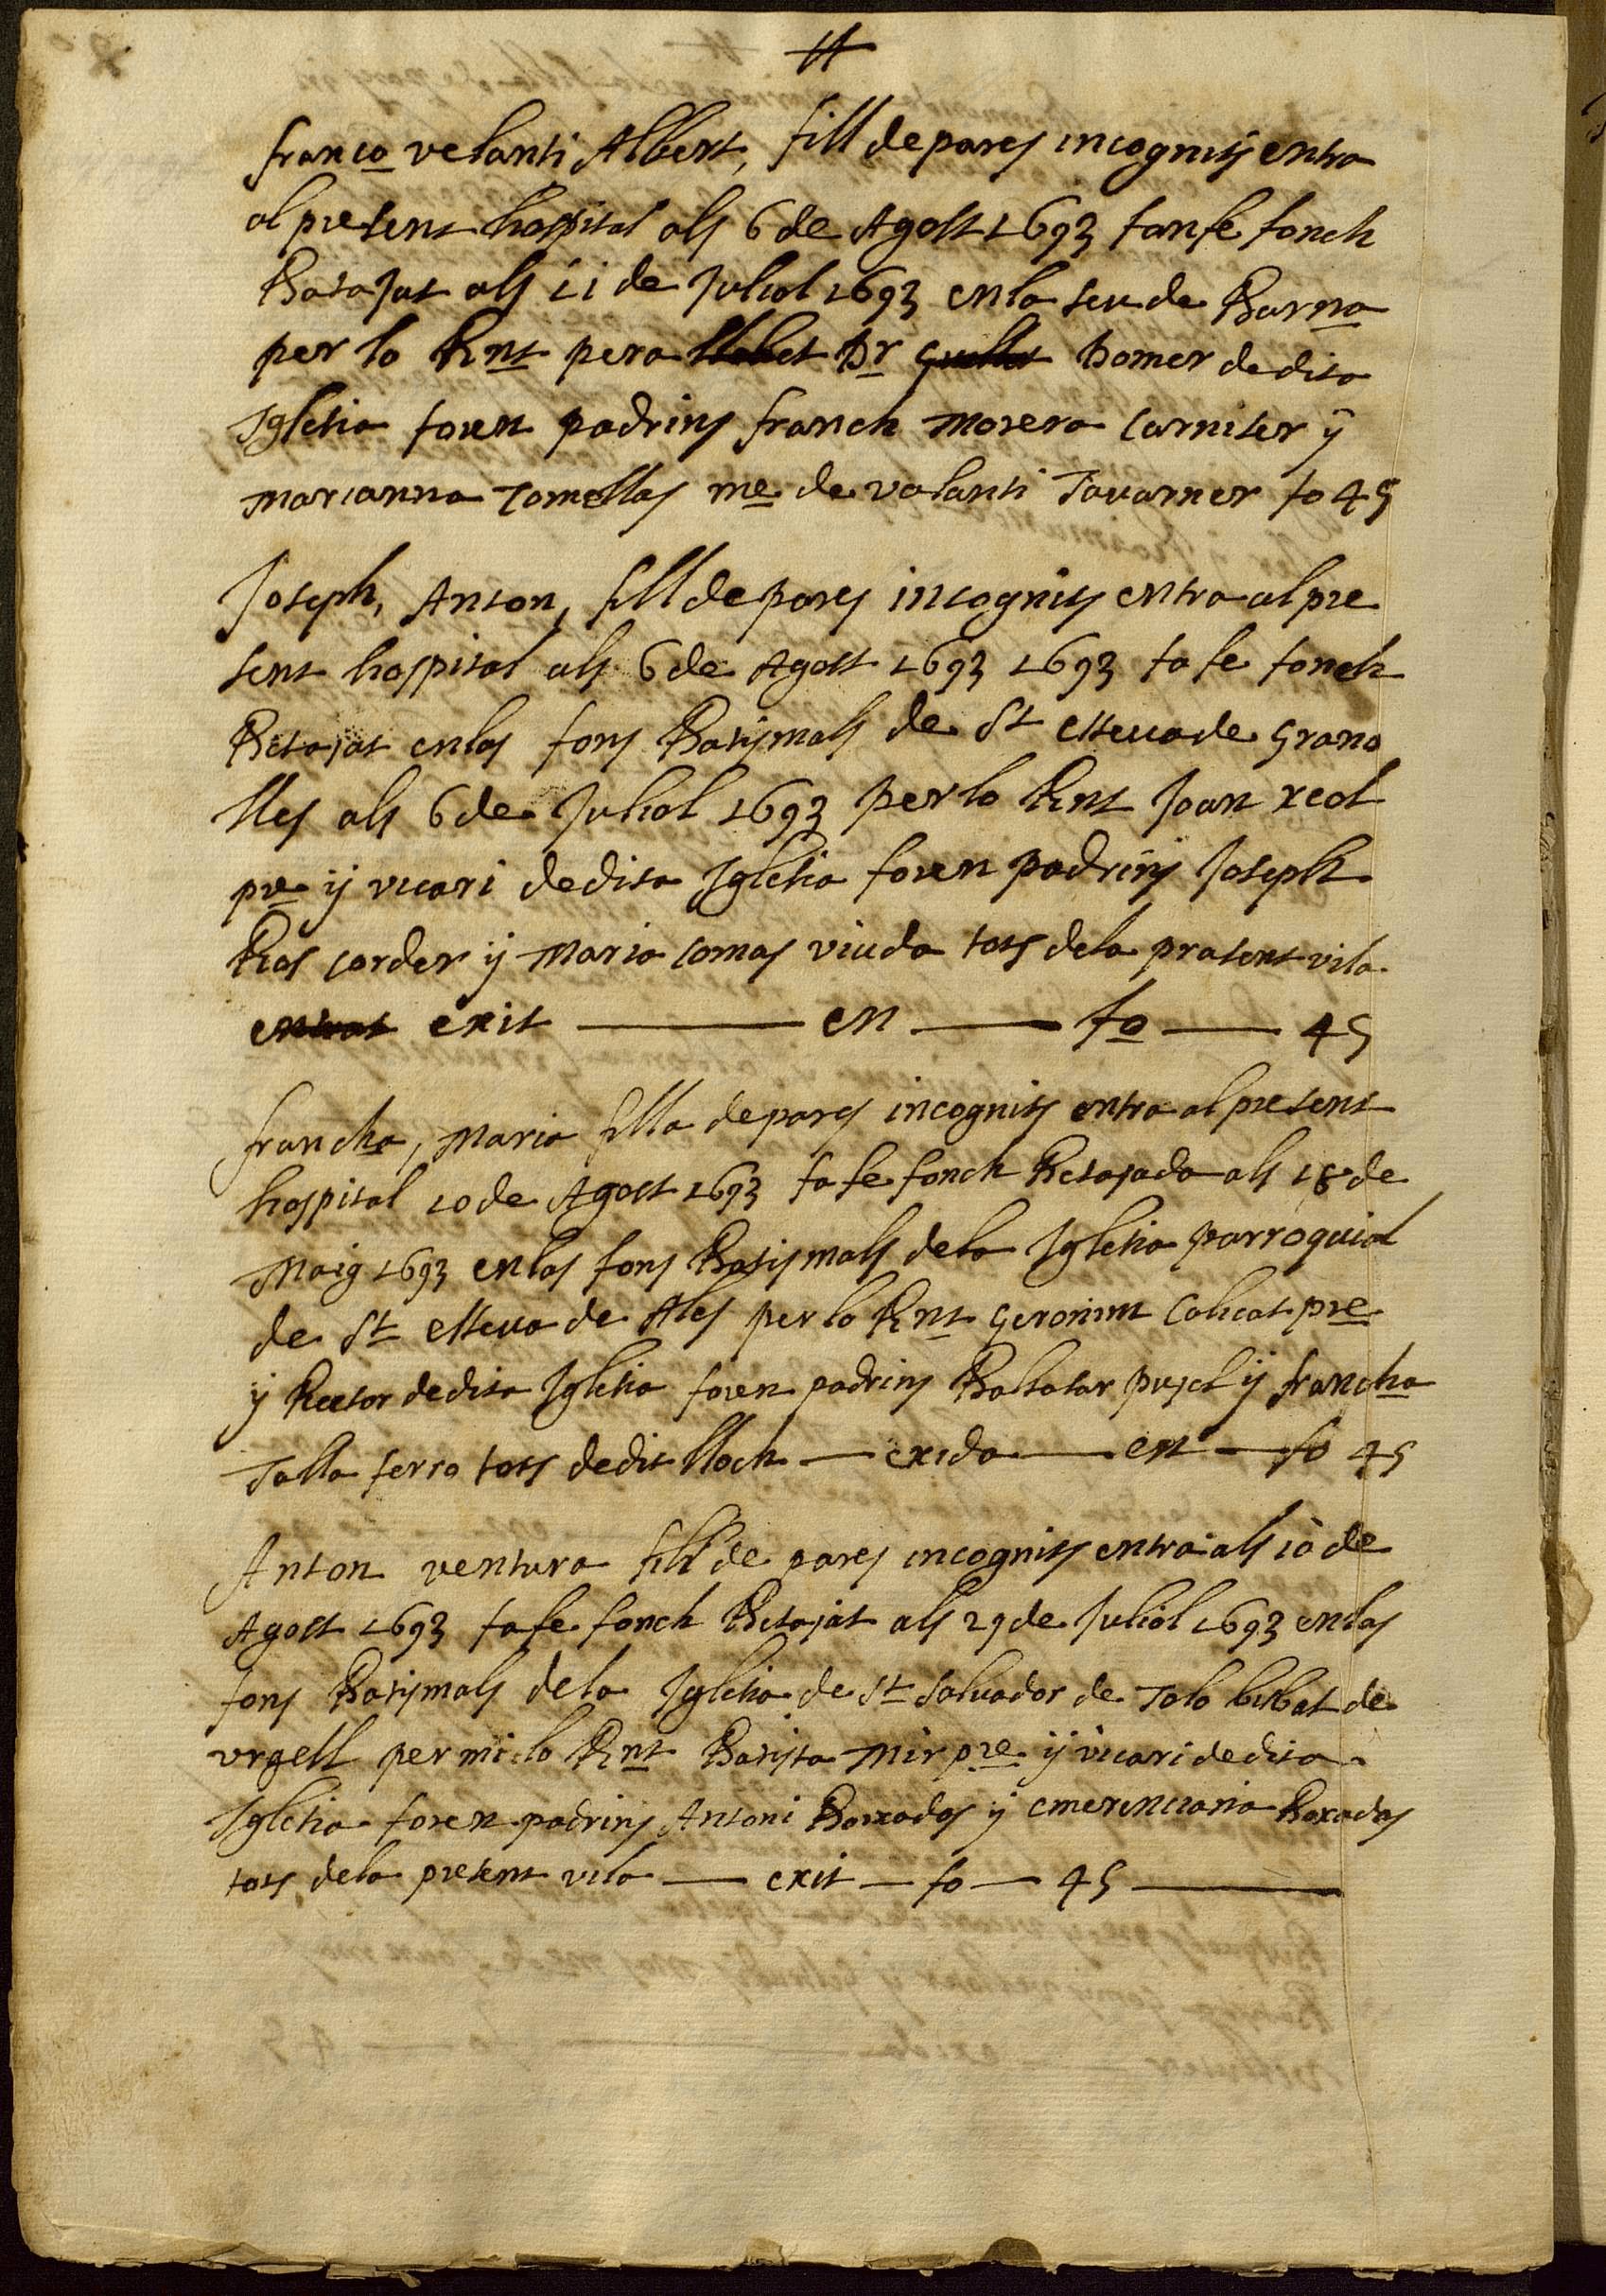 franco velanti Albert, fill de pares incognits entra
al present hospital als 6 de Agost 1693 fan fe fonch
Batajat als 11 de Juliol 1693 en la seu de Barna
per lo Rnt pera Domer de dita
Iglesia foren padrins franch morera carniser ÿ
marianna Tomellas me de valanti Tavarner fo 45
Joseph, Anton, fill de pares incognits entra al pre
sent hospital als 6 de Agost 1693 1693 fa fe fonch
Betajat en las fons Batismals de St esteva de Grano
lles als 6 de Juliol 1693 per lo Rnt Joan
pre ÿ vicari de dita Iglesia foren padrins Joseph
Ros corder ÿ Maria comas viuda tots de la prasent vila
entrat exit — en — fo — 45
francha, Maria filla de pares incognits entra al present
hospital 10 de Agost 1693 fa fe fonch Betajada als 18 de
Maig 1693 en las fons Batismals de la Iglesia parroquial
de St esteva de Ales per lo Rnt Geronim pre
ÿ Rector de dita Iglesia foren padrins Baltasar pujol ÿ francha
Talla ferro tots de dit lloch — exida — en — fo 45
Anton ventura fill de pares incognits entra als 10 de
Agost 1693 fa fe fonch Betajat als 29 de Juliol 1693 en las
fons Batismals de la Iglesia de St Salvador de Tolo bisbat de
vrgell per mi lo Rnt Batista Mir pre ÿ vicari de dita
Iglesia foren padrins Antoni Boxadas ÿ emerenciana Boxadas
tots de la present vila — exit — fo — 45 —